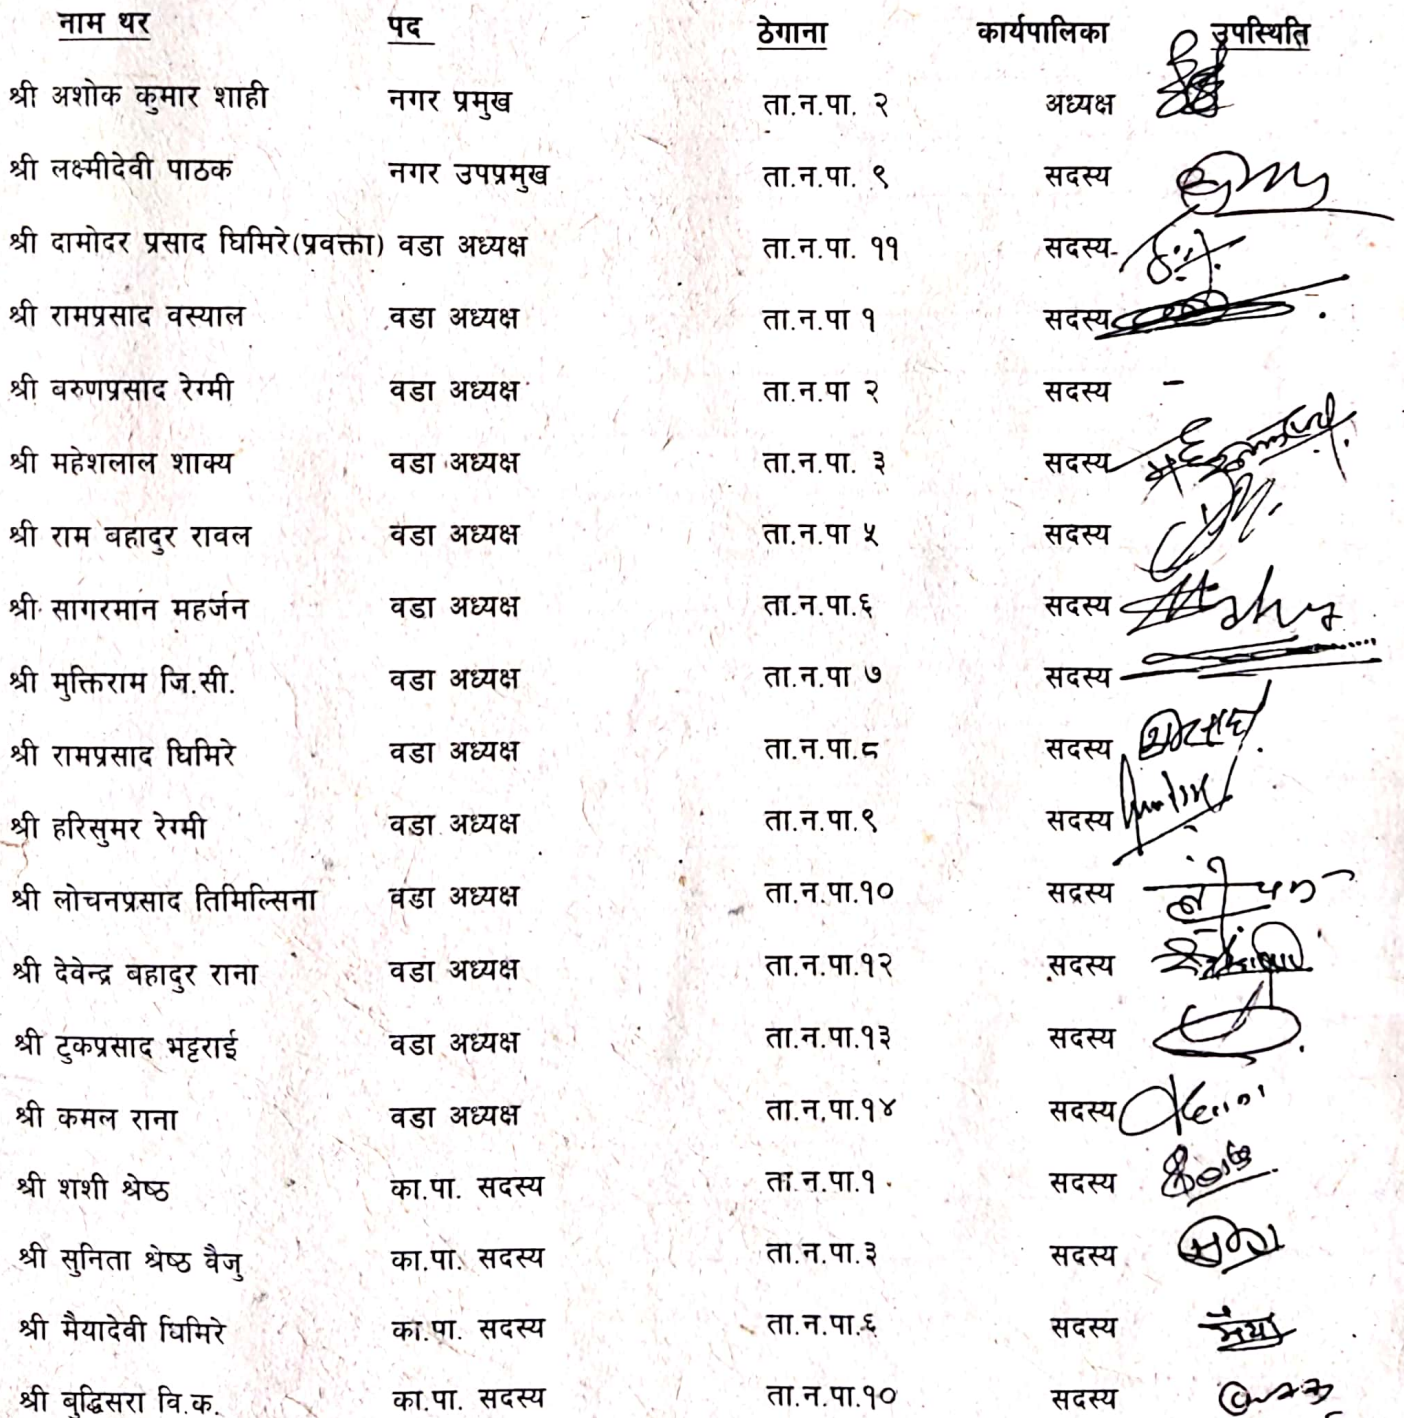 नाम थर पद ठेगाना कार्यपालिका उपस्थिति
श्री अशोक कुमार शाही नगर प्रमुख ता.न.पा. २ अध्यक्ष
श्री लक्ष्मीदेवी पाठक नगर उपप्रमुख ता.न.पा. ९ सदस्य
श्री दामोदर प्रसाद घिमिरे(प्रवक्ता) वडा अध्यक्ष ता.न.पा. ११ सदस्य
श्री रामप्रसाद वस्याल वडा अध्यक्ष ता.न.पा १ सदस्य
श्री वरुणप्रसाद रेग्मी वडा अध्यक्ष ता.न.पा २ सदस्य -
श्री महेशलाल शाक्य वडा अध्यक्ष ता.न.पा. ३ सदस्य
श्री राम वहादुर रावल वडा अध्यक्ष ता.न.पा ५ सदस्य
श्री सागरमान महर्जन वडा अध्यक्ष ता.न.पा.६ सदस्य
श्री मुक्तिराम जि.सी. वडा अध्यक्ष ता.न.पा ७ सदस्य
श्री रामप्रसाद घिमिरे वडा अध्यक्ष ता.न.पा.८ सदस्य
श्री हरिसुमर रेग्मी वडा अध्यक्ष ता.न.पा.९ सदस्य
श्री लोचनप्रसाद तिमिल्सिना वडा अध्यक्ष ता.न.पा.१० सदस्य
श्री देवेन्द्र बहादुर राना वडा अध्यक्ष ता.न.पा.१२ सदस्य
श्री टुकप्रसाद भट्टराई वडा अध्यक्ष ता.न.पा.१३ सदस्य
श्री कमल राना वडा अध्यक्ष ता.न.पा.१४ सदस्य
श्री शशी श्रेष्ठ का.पा. सदस्य ता.न.पा.१ सदस्य
श्री सुनिता श्रेष्ठ वैजु का.पा. सदस्य ता.न.पा.३ सदस्य
श्री मैयादेवी घिमिरे का.पा. सदस्य ता.न.पा.६ सदस्य मैया
श्री बुद्धिसरा वि.क. का.पा. सदस्य ता.न.पा.१० सदस्य